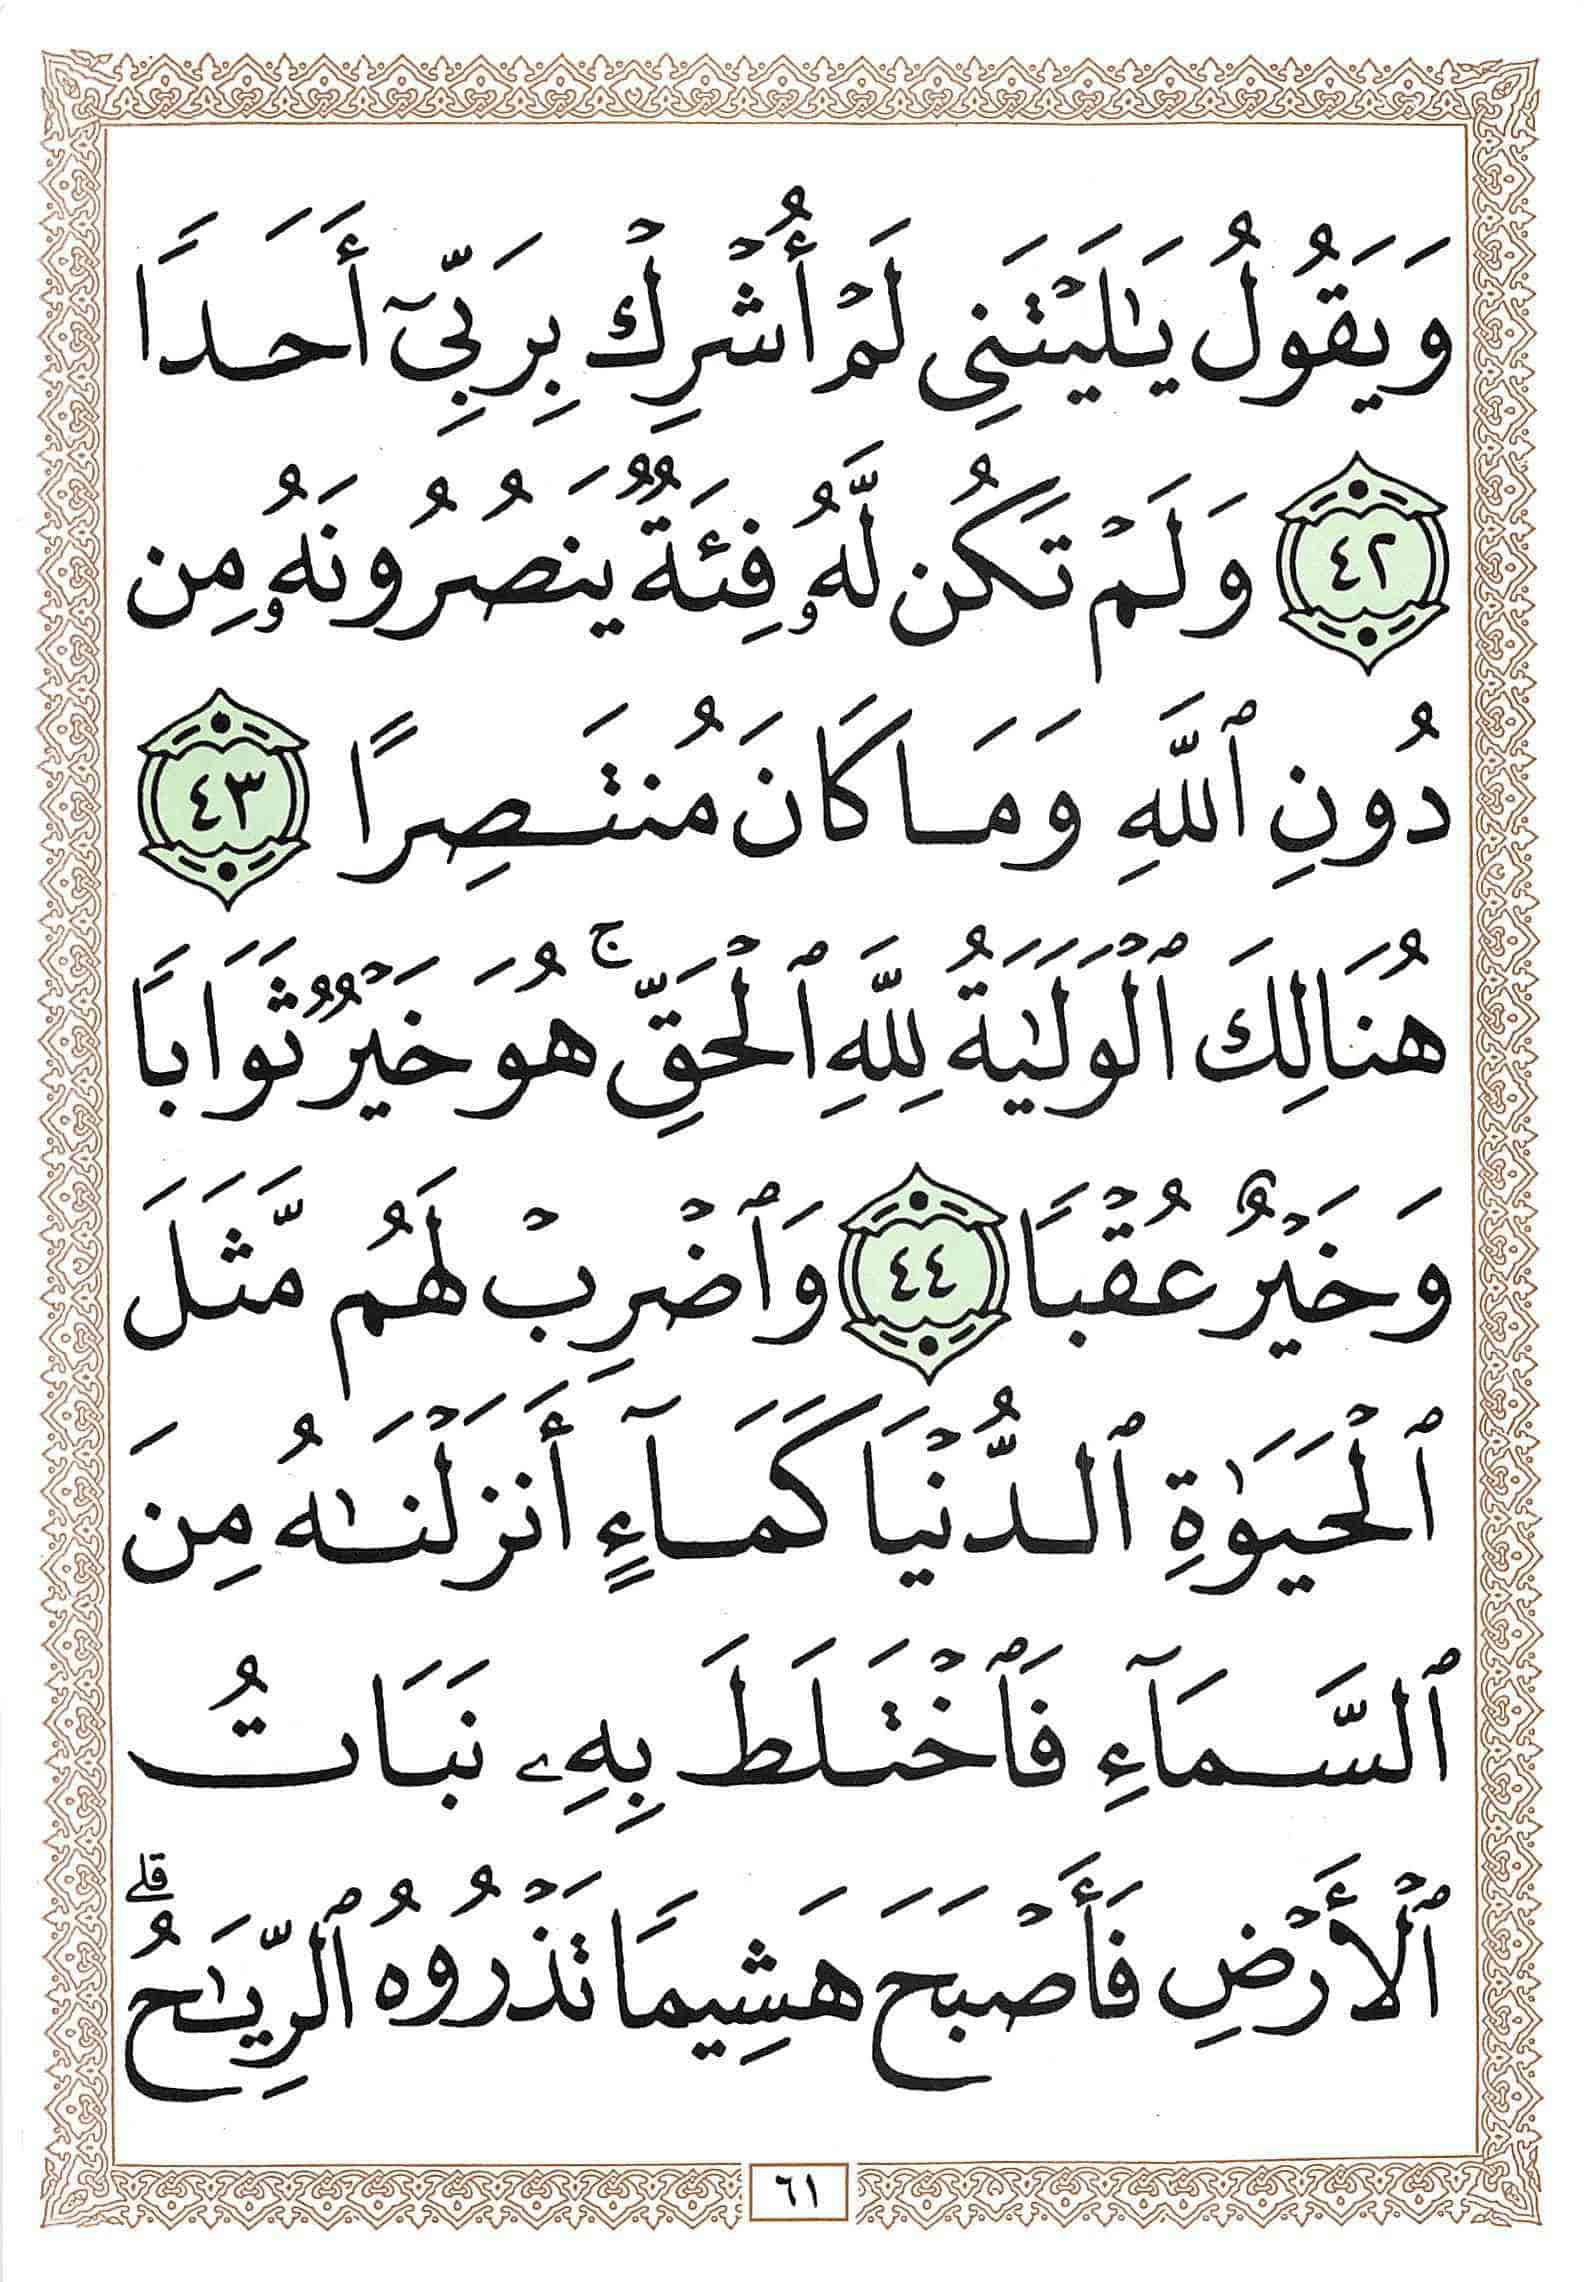 وَيَقُولُ يَٰلَيْتَنِى لَمْ أُشْرِكْ بِرَبِّىٓ أَحَدًا
٤٢ وَلَمْ تَكُن لَّهُۥ فِئَةٌ يَنصُرُونَهُۥ مِن
دُونِ ٱللَّهِ وَمَا كَانَ مُنتَصِرًا ٤٣
هُنَالِكَ ٱلْوَلَٰيَةُ لِلَّهِ ٱلْحَقِّ ۚ هُوَ خَيْرٌ ثَوَابًا
وَخَيْرٌ عُقْبًا ٤٤ وَٱضْرِبْ لَهُم مَّثَلَ
ٱلْحَيَوٰةِ ٱلدُّنْيَا كَمَآءٍ أَنزَلْنَٰهُ مِنَ
ٱلسَّمَآءِ فَٱخْتَلَطَ بِهِۦ نَبَاتُ
ٱلْأَرْضِ فَأَصْبَحَ هَشِيمًا تَذْرُوهُ ٱلرِّيَٰحُ ۗ
٦١